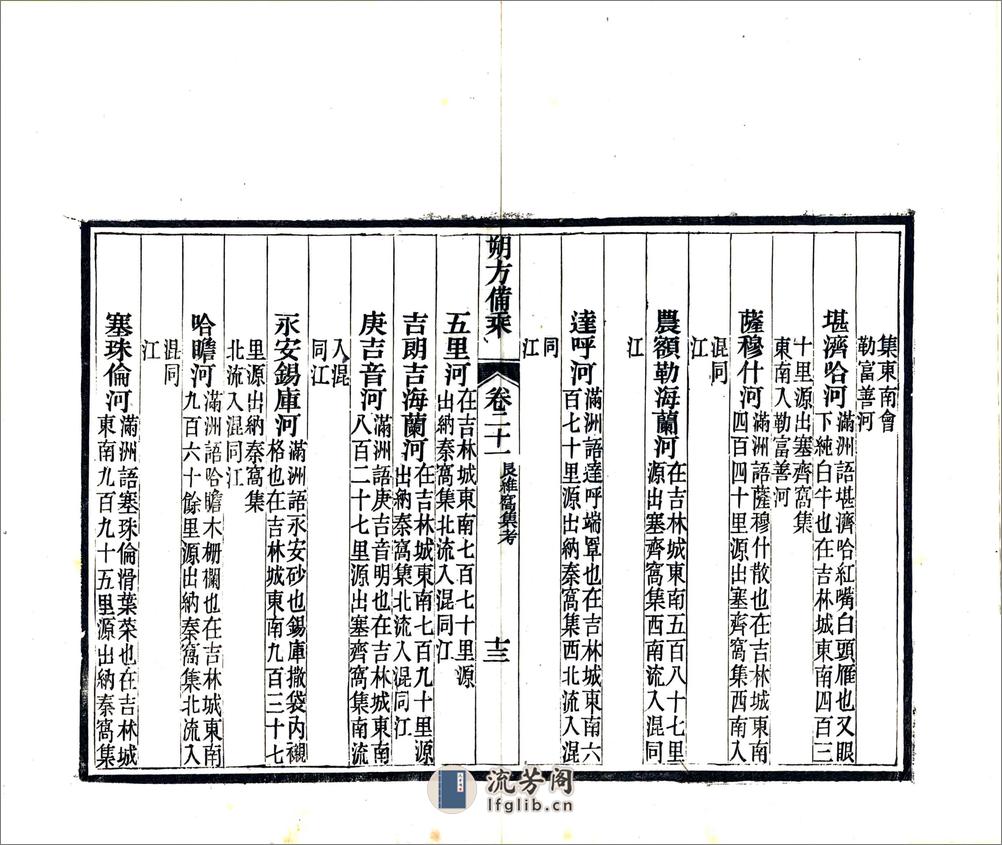 集東南會
勒富善河
堪濟哈河滿洲語堪濟哈紅嘴白頭雁也又眼
下純白牛也在吉林城東南四百三
十里源出塞齊窩集
東南入勒富善河
薩穆什河滿洲語薩穆什散也在吉林城東南
四百四十里源出塞齊窩集西南入
混同
江
農額勒海蘭河在吉林城東南五百八十七里
源出塞齊窩集西南流入混同
江
達呼河滿洲語達呼端罩也在吉林城東南六
百七十里源出納秦窩集西北流入混
同
江
朔方備乘 卷二十一 艮維窩集考 十三
五里河在吉林城東南七百七十里源
出納秦窩集北流入混同江
吉朗吉海蘭河在吉林城東南七百九十里源
出納秦窩集北流入混同江
庚吉音河滿洲語庚吉音明也在吉林城東南
八百二十七里源出塞齊窩集南流
入混
同江
永安錫庫河滿洲語永安砂也錫庫撒袋內襯
格也在吉林城東南九百三十七
里源出納秦窩集
北流入混同江
哈瞻河滿洲語哈瞻木柵欄也在吉林城東南
九百六十餘里源出納秦窩集北流入
混同
江
塞珠倫河滿洲語塞珠倫滑葉菜也在吉林城
東南九百九十五里源出納秦窩集
流芳阁
lfglib.cn